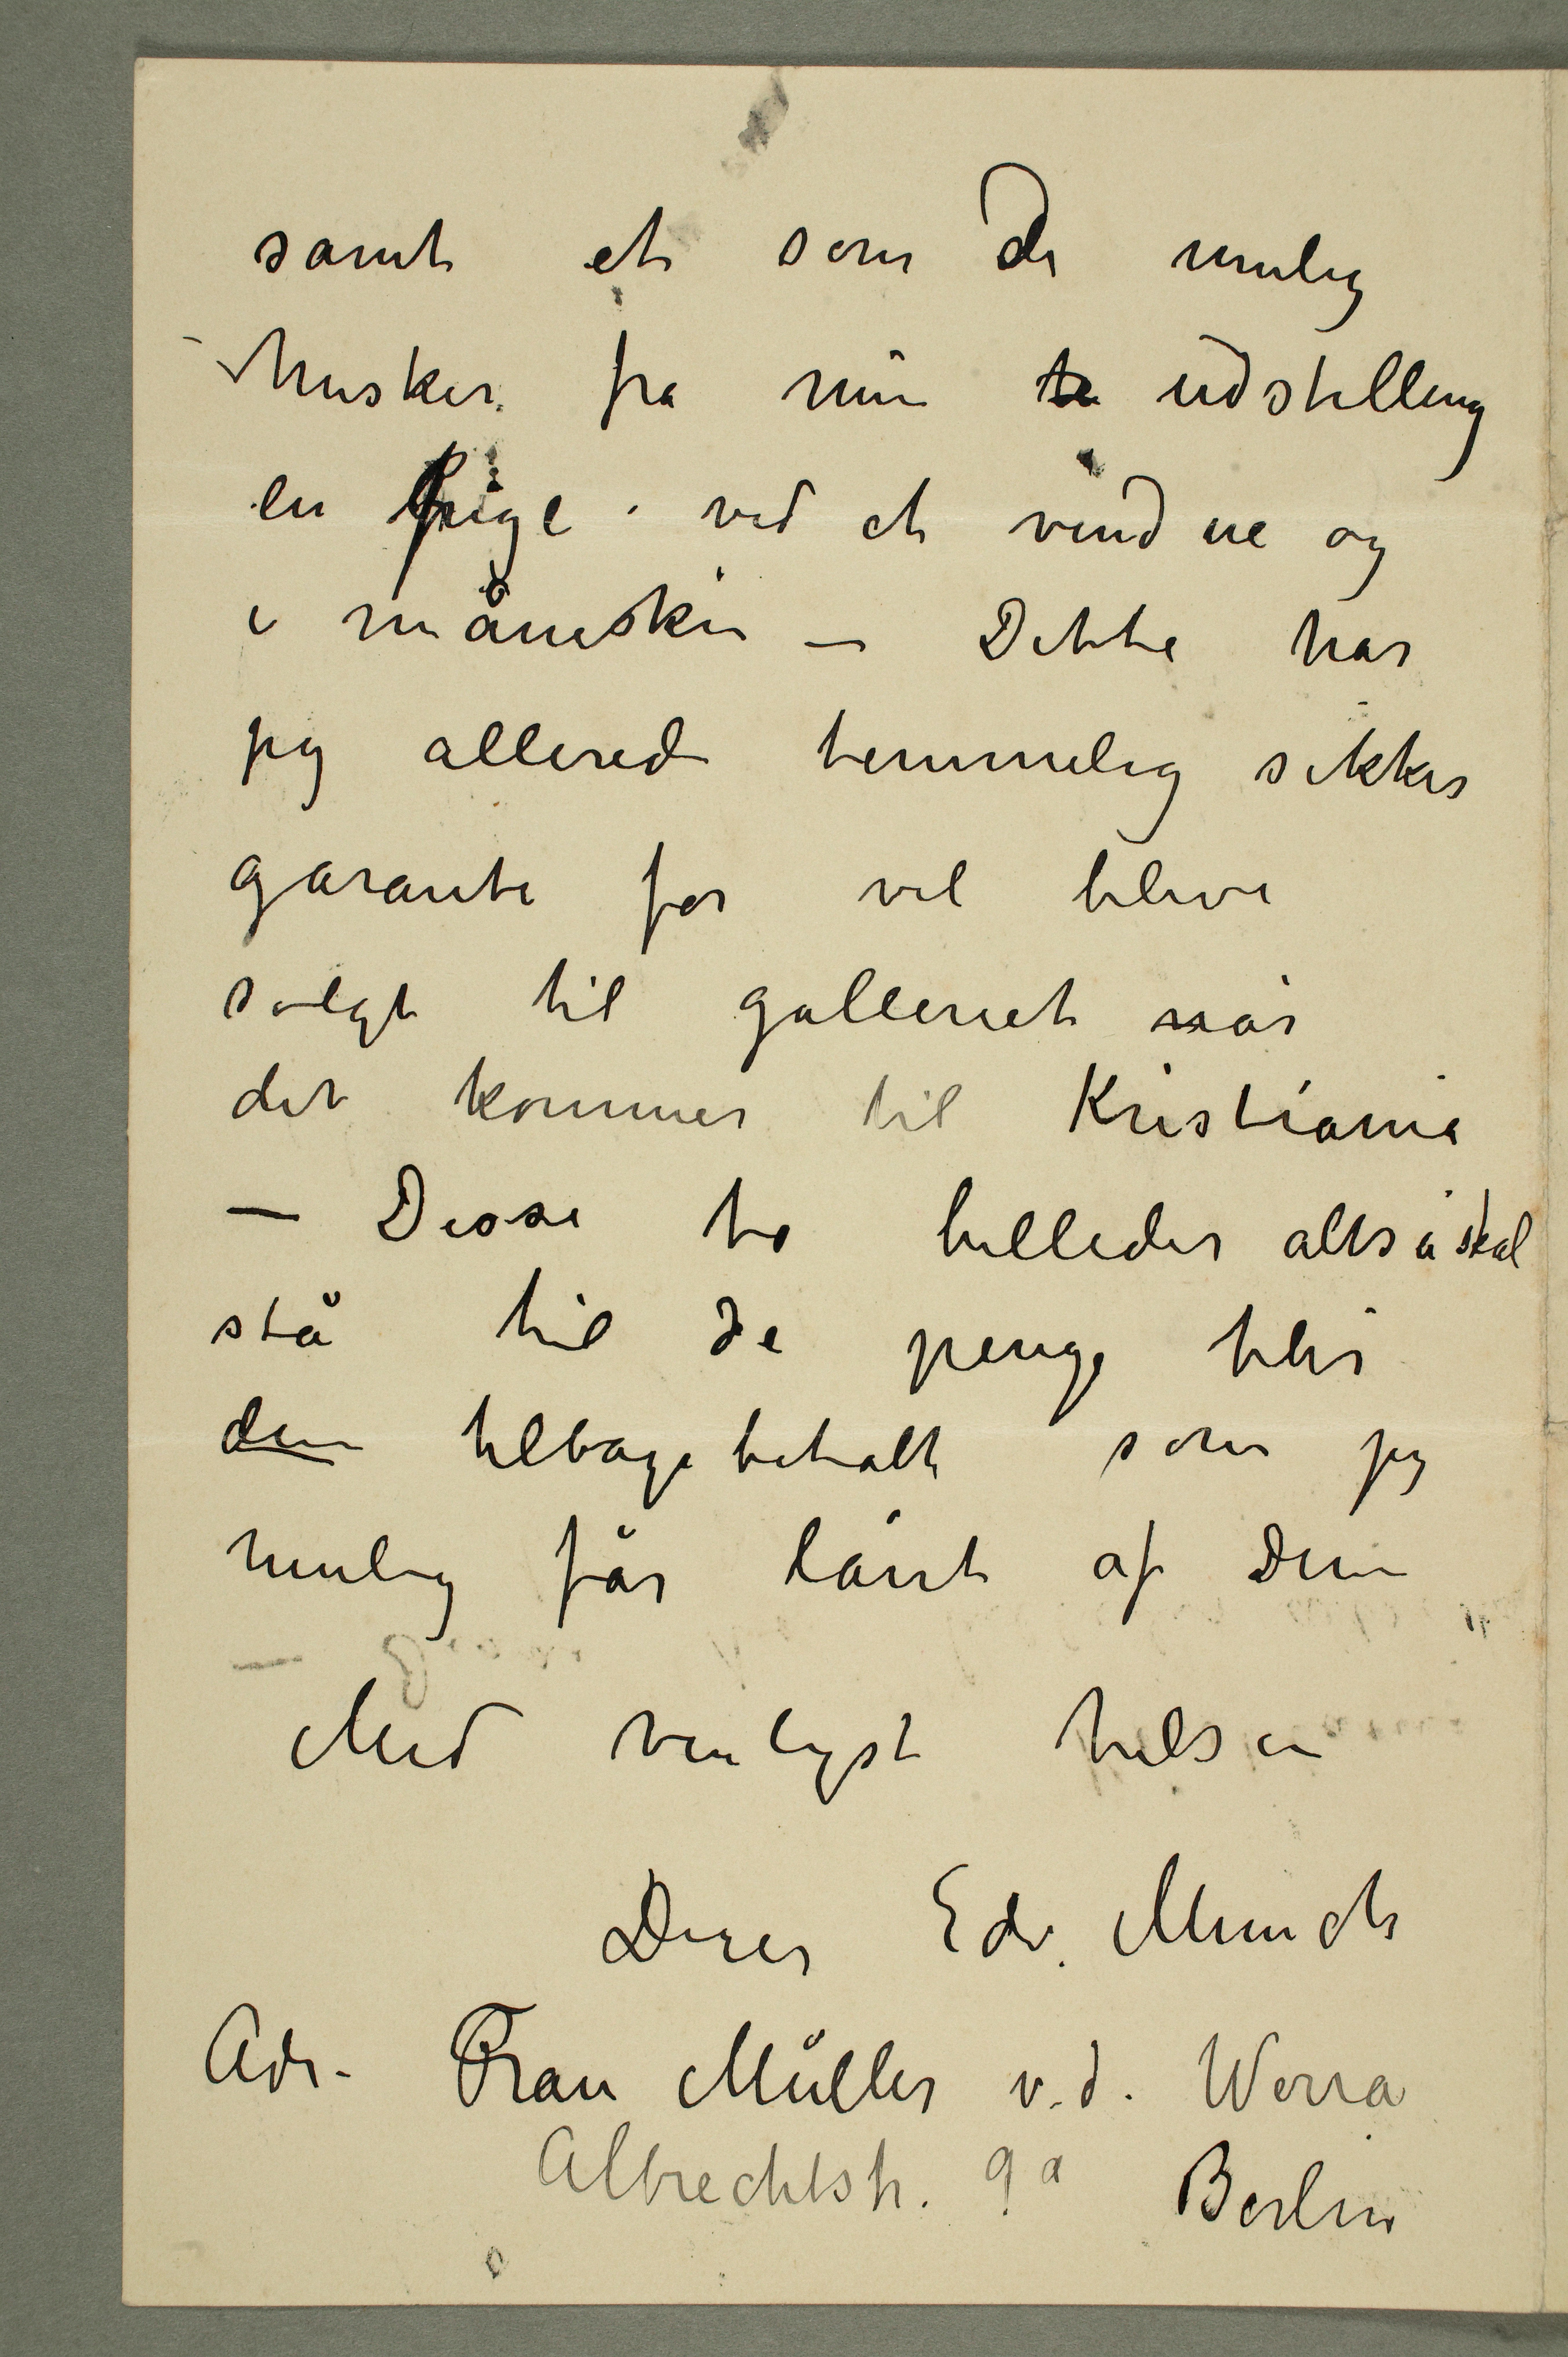 samt et som De mulig
husker fra min udstilling
en pige i ved et vindue og
i måneskin – Dette har
jeg allerede temmelig sikker
garanti for vil blive
solgt til galleriet når
det kommer til Kristiania
— Disse to billeder altså skal
stå til de penge blir
dem tilbagebetalt som jeg
mulig får lånt af Dem
—
Med venligst hilsen
Deres Edv. Munch
Adr. Frau Müller v.d. Werra
Albrechtstr. 9a Berlin